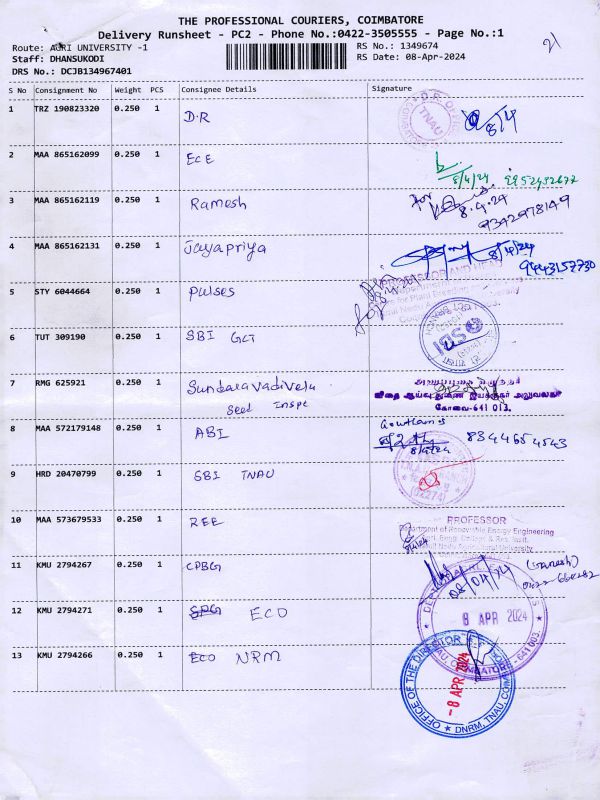 THE PROFESSIONAL COURIERS, COIMBATORE
Delivery Runsheet - PC2 - Phone No.:0422-3505555 - Page No.:1
Route: AGRI UNIVERSITY -1
RS No.: 1349674
Staff: DHANSUKODI
RS Date: 08-Apr-2024
DRS No.: DCJB134967401
S No Consignment No Weight PCS Consignee Details Signature
1 TRZ 190823320 0.250 1 D.R
TNAU
8/4
2 MAA 865162099 0.250 1 ECE
8/4/24 9952492677
3 MAA 865162119 0.250 1 Ramesh
for
8.4.24
9342978149
4 MAA 865162131 0.250 1 Jayapriya
8/4/24
9443157730
5 STY 6044664 0.250 1 Pulses
PROFESSOR AND HEAD
6 TUT 309190 0.250 1 SBI GCT
SBI
7 RMG 625921 0.250 1 Sundaravadivelu
Seed Inspe
விதை ஆய்வு துணை இயக்குநர் அலுவலகம்
கோவை-641 013.
8 MAA 572179148 0.250 1 ABI
Goutham S
8/4/24
8344654543
9 HRD 20470799 0.250 1 SBI TNAU
(02274)
10 MAA 573679533 0.250 1 REE
PROFESSOR
Department of Renewable Energy Engineering
Agrl. Engg. College & Res. Instt.
Tamil Nadu Agricultural University
8/4/24
11 KMU 2794267 0.250 1 CPBG
08/04/24
(Ganesh)
12 KMU 2794271 0.250 1 ECO
8 APR 2024
COIMBATORE - 641 003
13 KMU 2794266 0.250 1 NRM
OFFICE OF THE DIRECTOR
- 8 APR 2024
DNRM, TNAU, COIM